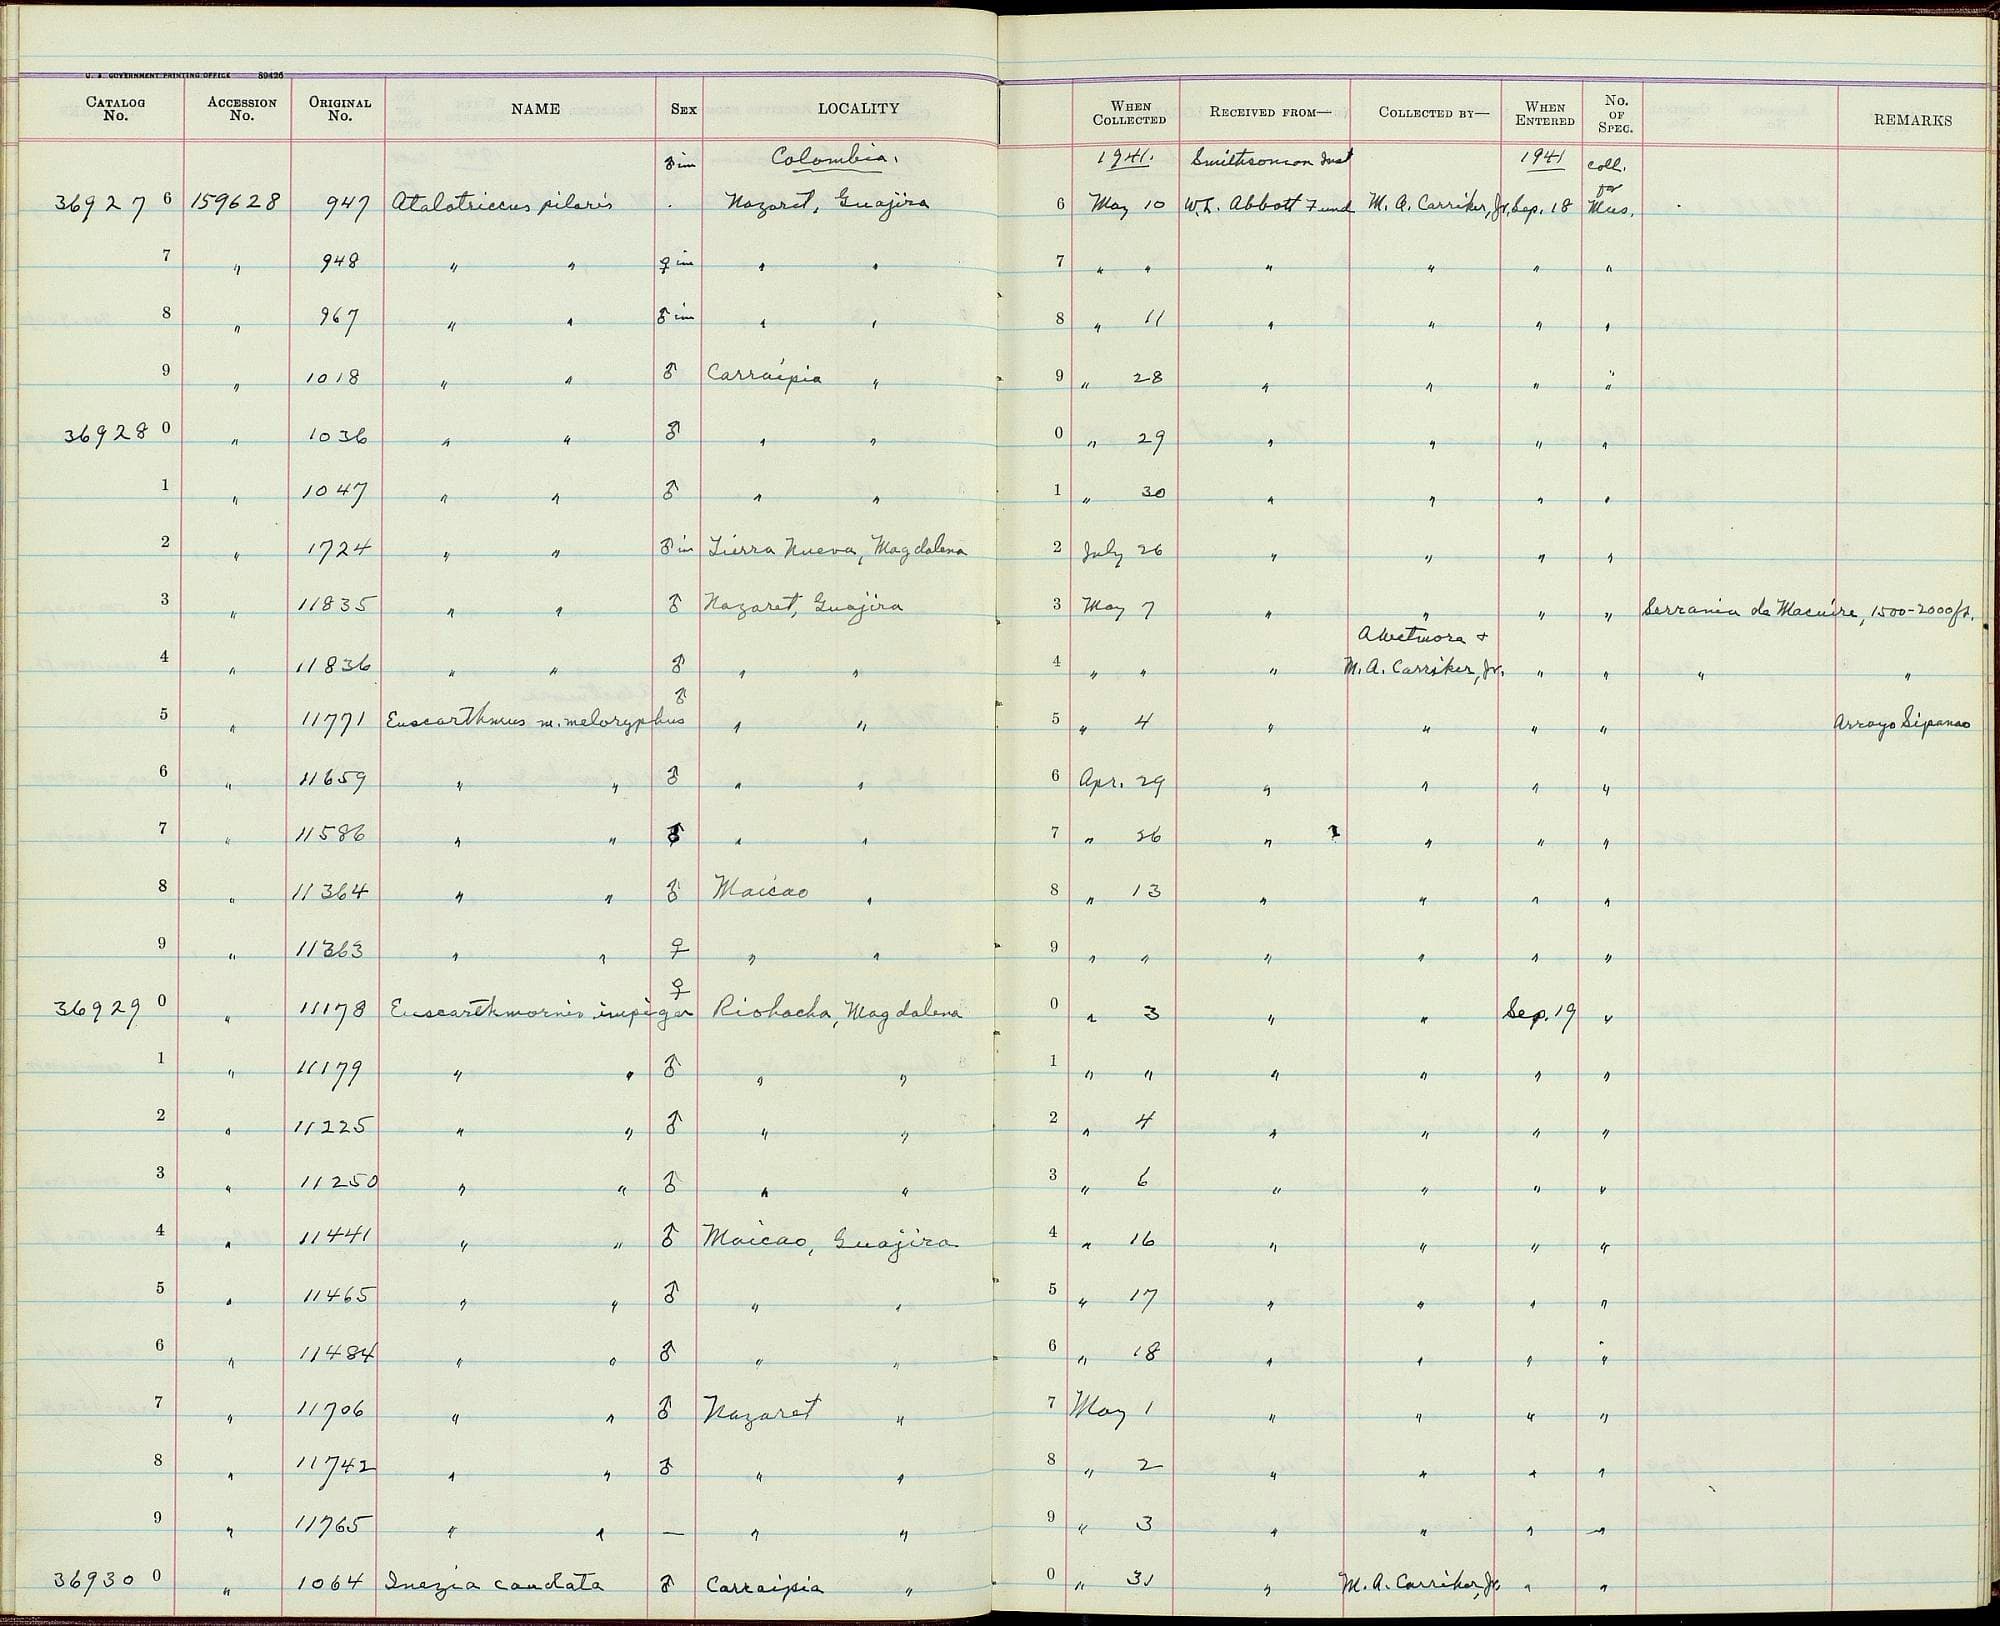 U. S. GOVERNMENT PRINTING OFFICE 89426
CATALOG No. ACCESSION No. ORIGINAL No. NAME SEX LOCALITY WHEN COLLECTED RECEIVED FROM— COLLECTED BY— WHEN ENTERED No. OF SPEC. REMARKS
♂ im Colombia. 1941. Smithsonian Inst 1941 coll. for
36927 6 159628 947 Atalotriccus pilaris Nazaret, Guajira 6 May 10 W.L. Abbott Fund M. A. Carriker, Jr. Sep. 18 Mus.
7 " 948 " " ♀ im " " 7 " " " " " "
8 " 967 " " ♂ im " " 8 " 11 " " " "
9 " 1018 " " ♂ Carraipia " 9 " 28 " " " "
36928 0 " 1036 " " ♂ " " 0 " 29 " " " "
1 " 1047 " " ♂ " " 1 " 30 " " " "
2 " 1724 " " ♂ im Tierra Nueva, Magdalena 2 July 26 " " " "
3 " 11835 " " ♂ Nazaret, Guajira 3 May 7 " " " " Serrania de Macuire, 1500-2000ft.
4 " 11836 " " ♂ " " 4 " " " A Wetmore + M. A. Carriker, Jr. " " " "
5 " 11771 Euscarthmus m. meloryphus ♂ " " 5 " 4 " " " " Arroyo Sipanao
6 " 11659 " " ♂ " " 6 Apr. 29 " " " "
7 " 11586 " " ♂ " " 7 " 26 " " " "
8 " 11364 " " ♂ Maicao " 8 " 13 " " " "
9 " 11363 " " ♀ " " 9 " " " " " "
36929 0 " 11178 Euscarthmornis impiger ♀ Riohacha, Magdalena 0 " 3 " " Sep. 19 "
1 " 11179 " " ♂ " " 1 " " " " " "
2 " 11225 " " ♂ " " 2 " 4 " " " "
3 " 11250 " " ♂ " " 3 " 6 " " " "
4 " 11441 " " ♂ Maicao, Guajira 4 " 16 " " " "
5 " 11465 " " ♂ " " 5 " 17 " " " "
6 " 11484 " " ♂ " " 6 " 18 " " " "
7 " 11706 " " ♂ Nazaret " 7 May 1 " " " "
8 " 11742 " " ♂ " " 8 " 2 " " " "
9 " 11765 " " — " " 9 " 3 " " " "
36930 0 " 1064 Inezia caudata ♂ Carraipia " 0 " 31 " M. A. Carriker, Jr. " "